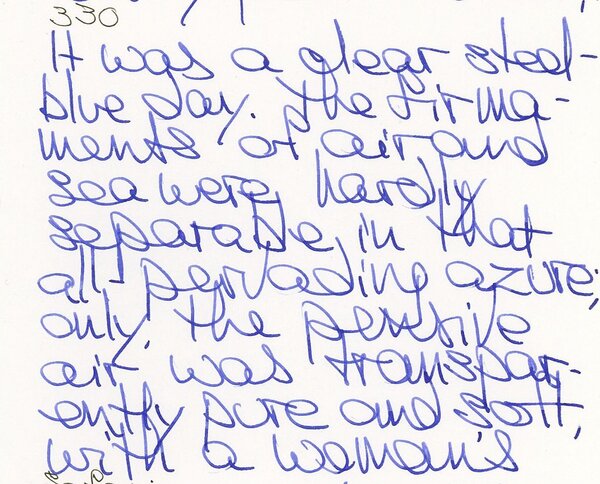 330
It was a clear steel-
blue day. The firma-
ments of air and
sea were hardly
separable in that
all-pervading azure;
only, the pensive
air was transpar-
ently pure and soft,
with a woman's